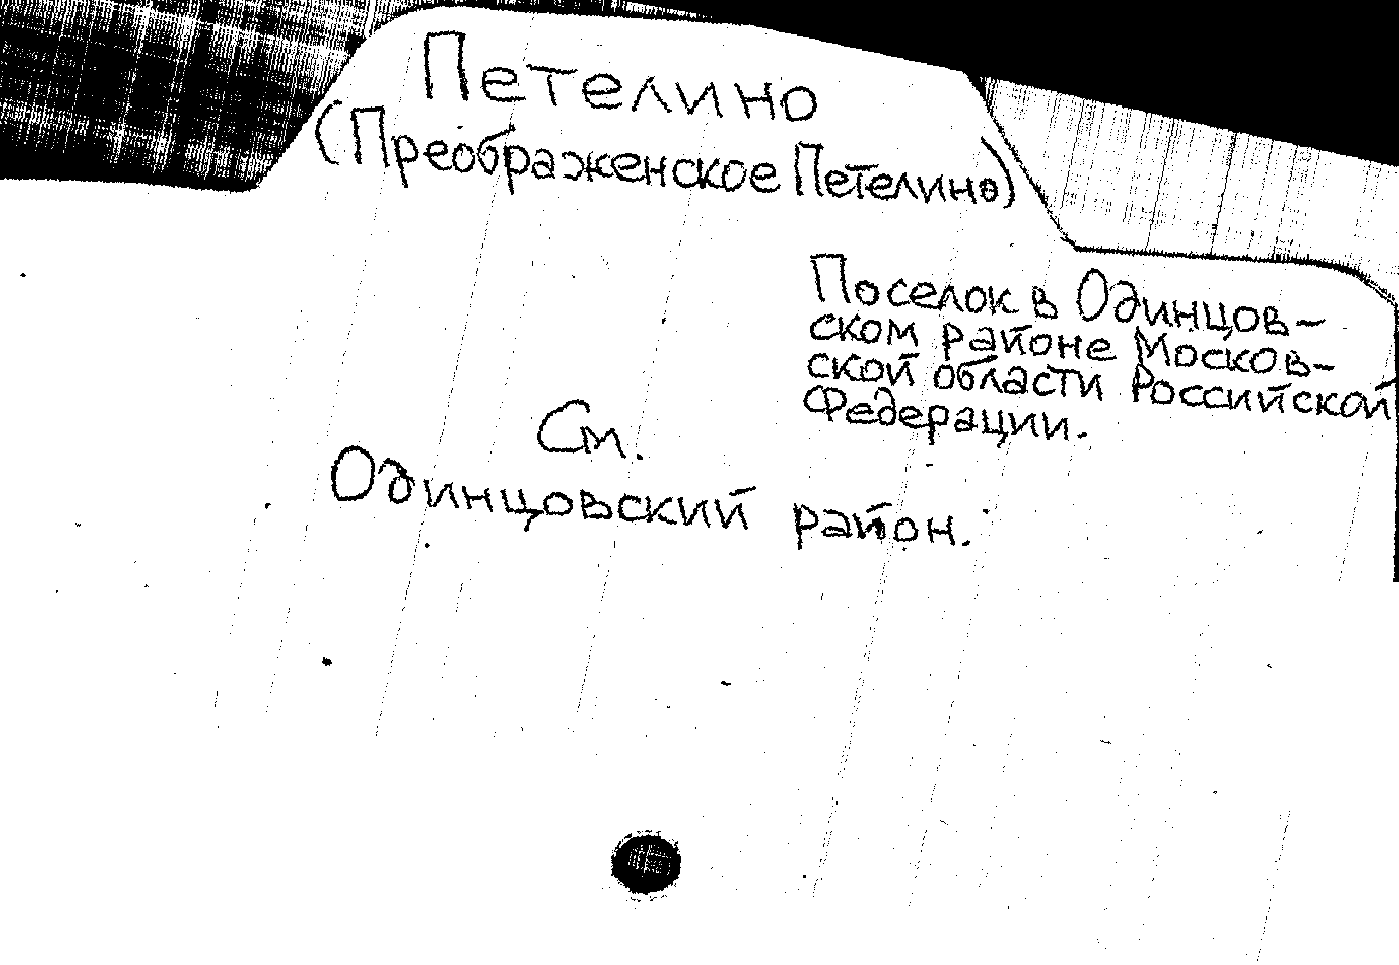 Петелино
(Преображенское Петелино)
Поселок в Одинцов-
ском районе Москов-
ской области Российской
Федерации.
См.
Одинцовский район.